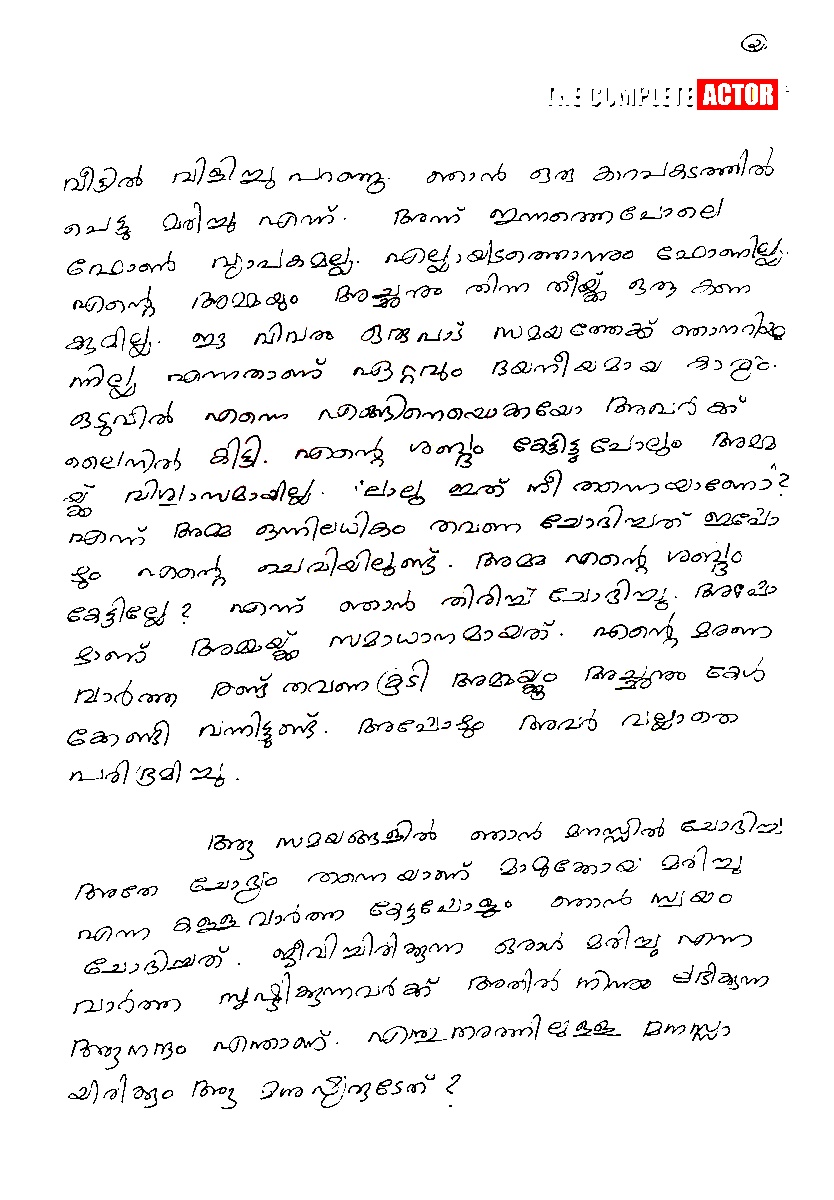 ൨
THE COMPLETE ACTOR
വീട്ടിൽ വിളിച്ചു പറഞ്ഞു. ഞാൻ ഒരു കാറപകടത്തിൽ
പെട്ടു മരിച്ചു എന്ന്. അന്ന് ഇന്നത്തെപോലെ
ഫോൺ വ്യാപകമല്ല. എല്ലായിടത്തൊന്നും ഫോണില്ല.
എന്റെ അമ്മയും അച്ഛനും തിന്ന തീയ്ക്ക് ഒരു കണ
ക്കുമില്ല. ഈ വിവരം ഒരുപാട് സമയത്തേക്ക് ഞാനറിയു
ന്നില്ല എന്നതാണ് ഏറ്റവും ദയനീയമായ കാര്യം.
ഒടുവിൽ എന്നെ എങ്ങിനെയൊക്കെയോ അവർക്ക്
ലൈനിൽ കിട്ടി. എന്റെ ശബ്ദം കേട്ടിട്ടുപോലും അമ്മ
യ്ക്ക് വിശ്വാസമായില്ല. 'ലാലു ഇത് നീ തന്നെയാണോ'?
എന്ന് അമ്മ ഒന്നിലധികം തവണ ചോദിച്ചത് ഇപ്പോ
ഴും എന്റെ ചെവിയിലുണ്ട്. അമ്മ എന്റെ ശബ്ദം
കേട്ടില്ലേ? എന്ന് ഞാൻ തിരിച്ച് ചോദിച്ചു. അപ്പോ
ഴാണ് അമ്മയ്ക്ക് സമാധാനമായത്. എന്റെ മരണ
വാർത്ത രണ്ട് തവണകൂടി അമ്മയ്ക്കും അച്ഛനും കേൾ
ക്കേണ്ടി വന്നിട്ടുണ്ട്. അപ്പോഴും അവർ വല്ലാതെ
പരിഭ്രമിച്ചു.
ആ സമയങ്ങളിൽ ഞാൻ മനസ്സിൽ ചോദിച്ച
അതേ ചോദ്യം തന്നെയാണ് മാമുക്കോയ മരിച്ചു
എന്ന കള്ളവാർത്ത കേട്ടപ്പോളും ഞാൻ സ്വയം
ചോദിച്ചത്. ജീവിച്ചിരിക്കുന്ന ഒരാൾ മരിച്ചു എന്ന
വാർത്ത സൃഷ്ടിക്കുന്നവർക്ക് അതിൽ നിന്നും ലഭിക്കുന്ന
ആനന്ദം എന്താണ്. എന്തുതരത്തിലുള്ള മനസ്സാ
യിരിക്കും ആ മനുഷ്യന്റേത്?